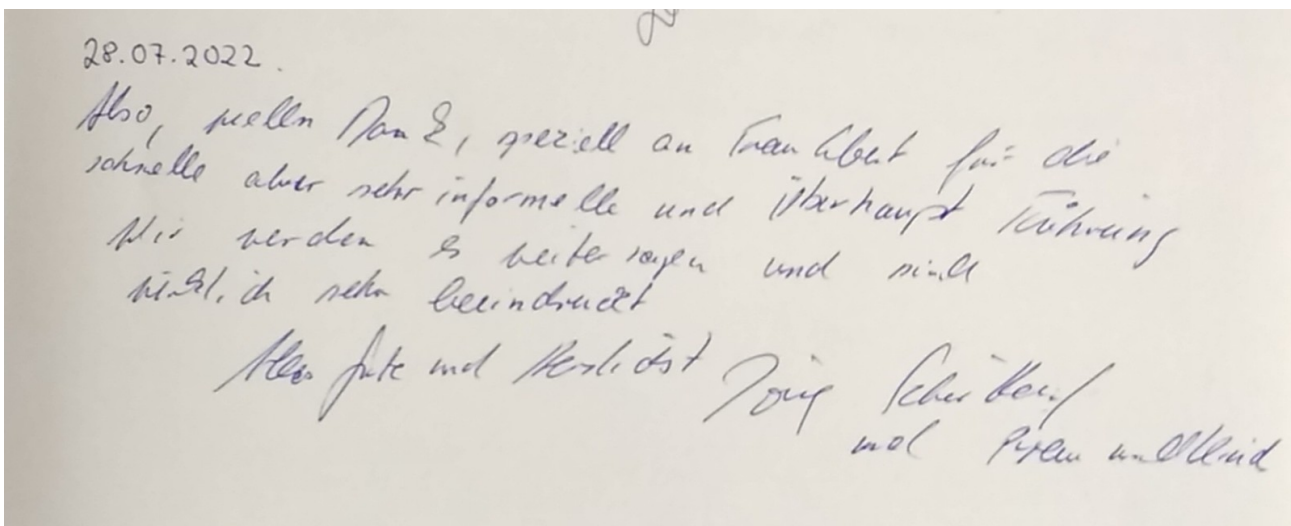 28.07.2022.
Also, vielen Dank, speziell an Frau für die
schnelle aber sehr informelle und überhaupt Führung
Wir werden es weitersagen und sind
wirklich sehr beeindruckt
Alles Gute und Herzlichst Jörg
und Frau und Kind